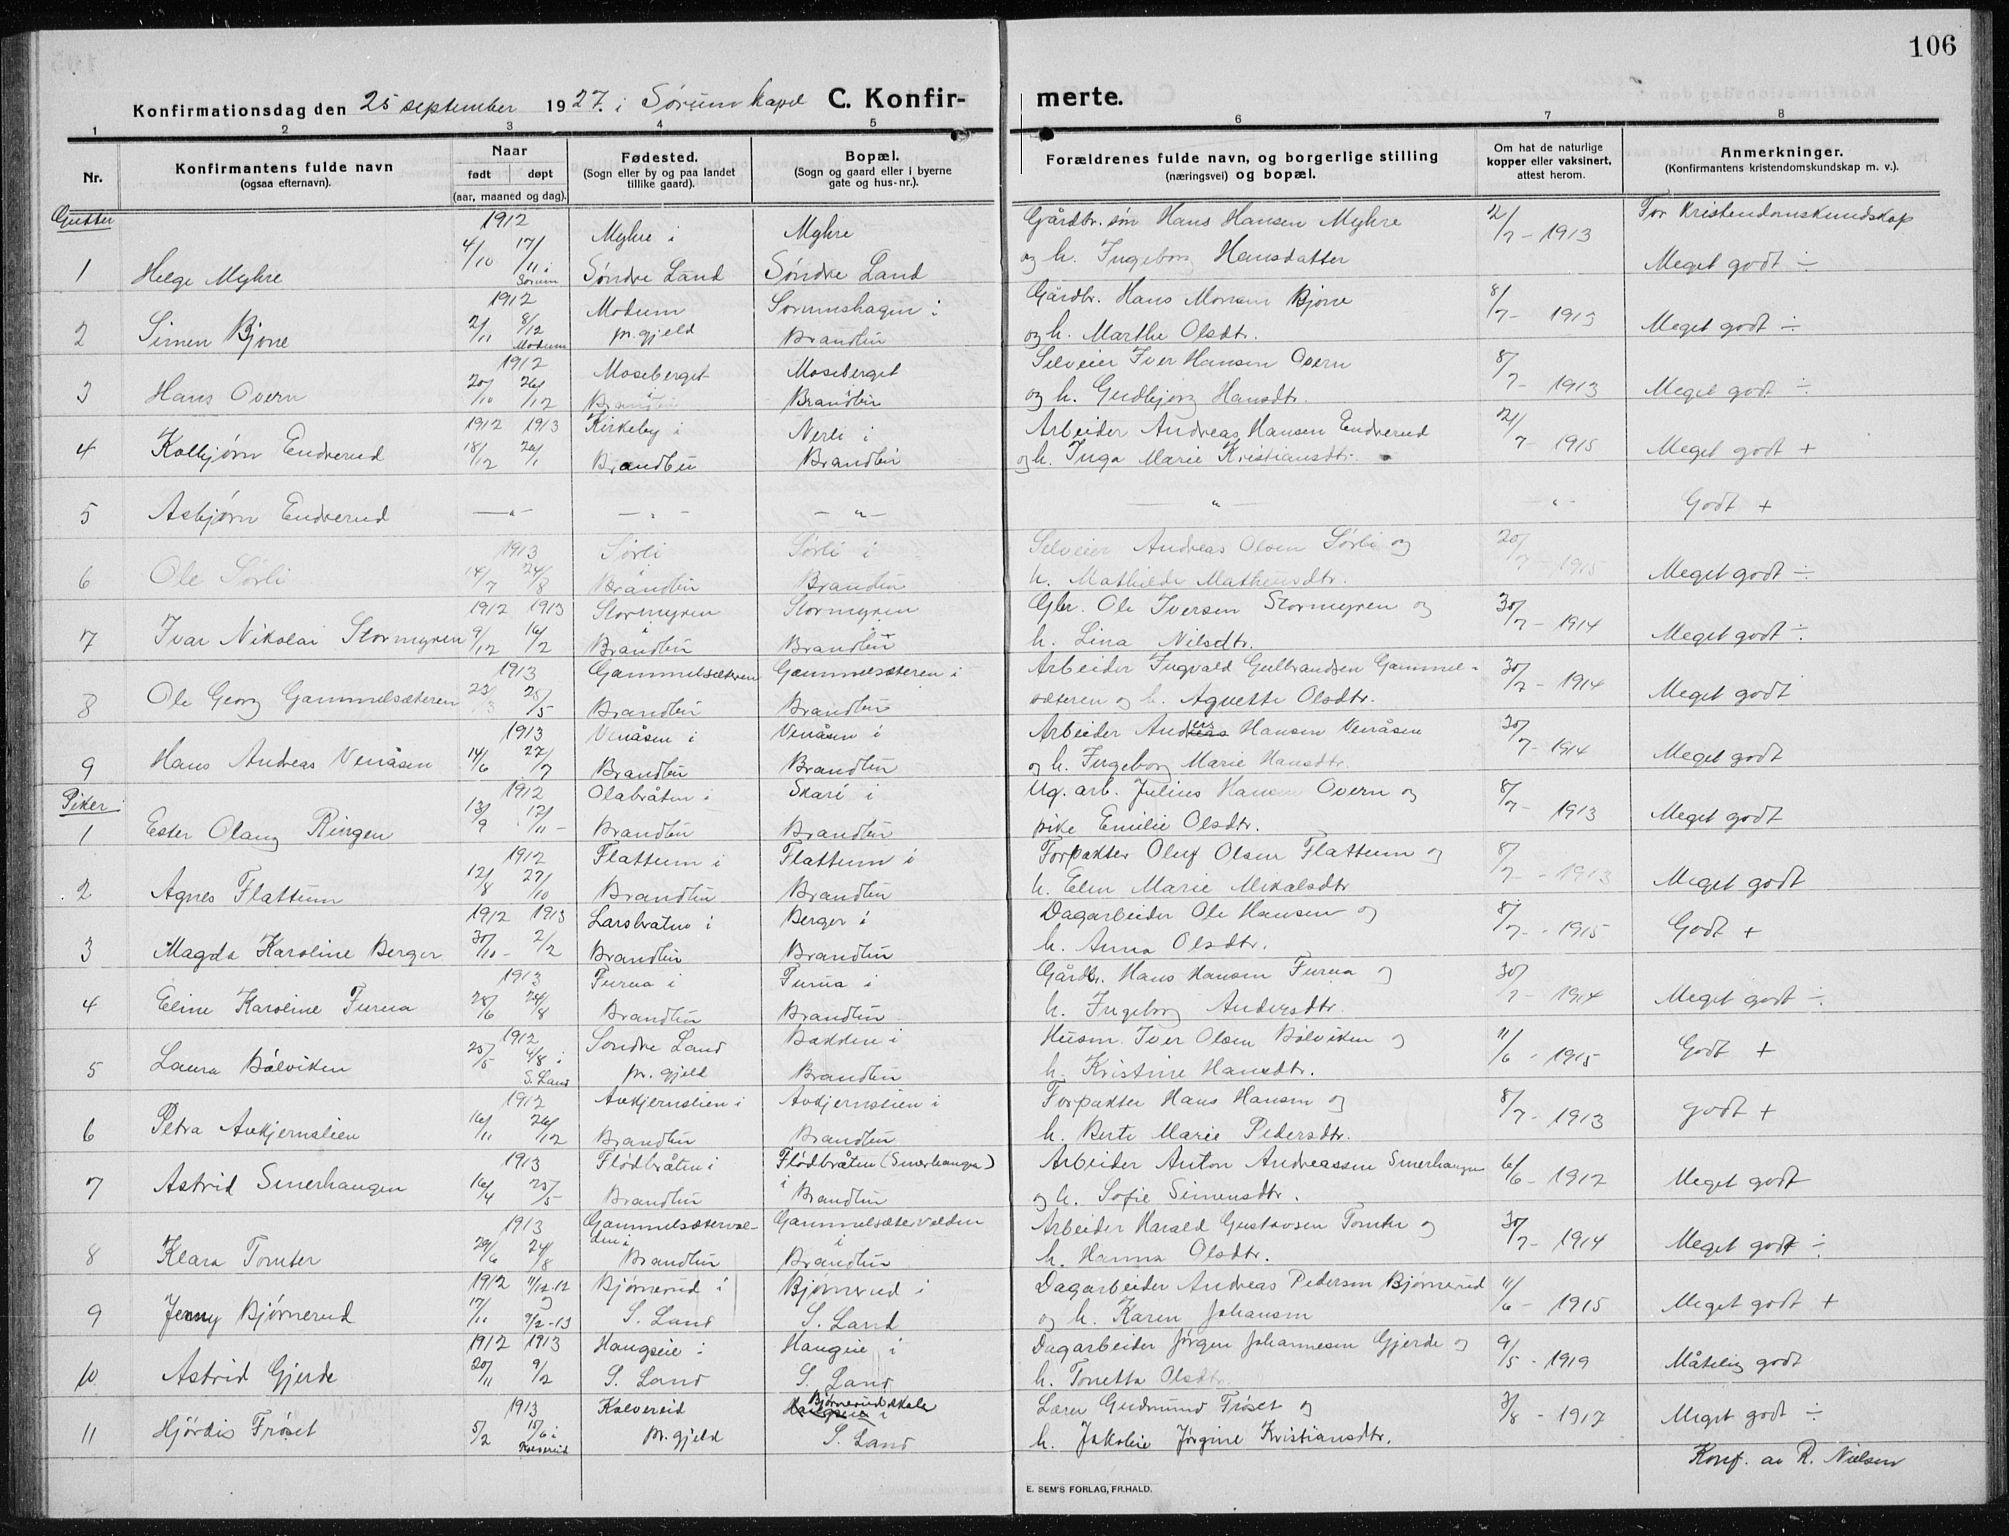 106
Konfirmationsdag den 25 september 1927. i Sørum kapel C. Konfir-merte.
1 2 3 4 5 6 7 8
Nr. Konfirmantens fulde navn (ogsaa efternavn). Naar født døpt (aar, maaned og dag). Fødested. (Sogn eller by og paa landet tillike gaard). Bopæl. (Sogn og gaard eller i byerne gate og hus-nr.). Forældrenes fulde navn, og borgerlige stilling (næringsvei) og bopæl. Om hat de naturlige kopper eller vaksinert, attest herom. Anmerkninger. (Konfirmantens kristendomskundskap m. v.).
Gutter 1912 Myhre i Myhre Gårdbr. søn Hans Hansen Myhre 2/7 - 1913 For Kristendomskundskap
1 Helge Myhre 4/10 17/11 i Sørum Søndre Land Søndre Land og h. Ingeborg Hansdatter Meget godt ÷
1912 Modum Sørumshagen i Gårdbr. Hans Bjone 8/7 - 1913
2 Simen Bjone 2/11 8/12 Modum pr. gjeld Brandbu og h. Marthe Olsdtr. Meget godt ÷
1912 Moseberget Moseberget Selveier Iver Hansen Overn 8/7 - 1913
3 Hans Overn 20/10 26/12 i Brandbu Brandbu og h. Gudbjørg Hansdtr. Meget godt ÷
1912 1913 Kirkeby i Nerli i Arbeider Andreas Hansen Endrerud 2/7 - 1915
4 Kolbjørn Endrerud 18/12 26/1 Brandbu Brandbu og h. Inga Marie Kristiansdtr. Meget godt +
5 Asbjørn Endrerud — " — — " — — " — — " — - " - Godt +
1913 Sørli Sørli i Selveier Andreas Olsen Sørli og 20/7 - 1915
6 Ole Sørli 14/7 24/8 i Brandbu Brandbu h. Mathilde Matheusdtr. Meget godt ÷
1912 1913 Stormyren Stormyren Gbr. Ole Iversen Stormyren og 30/7 - 1914
7 Ivar Nikolai Stormyren 9/12 16/2 i Brandbu i Brandbu h. Lina Nilsdtr. Meget godt ÷
1913 Gammelsæteren Gammelsæteren i Arbeider Ingvald Gulbrandsen Gammel-
8 Ole Georg Gammelsæteren 23/3 25/5 Brandbu Brandbu sæteren og h. Agnethe Olsdtr. 30/7 - 1914 Meget godt
1913 Venåsen i Venåsen i Arbeider Anders Hansen Venåsen 30/7 - 1914
9 Hans Andreas Venåsen 14/6 27/7 Brandbu Brandbu og h. Ingeborg Marie Hansdtr. Meget godt
Piker 1912 Olabråten i Skari i Ug. arb. Julius Hansen Overn og 8/7 - 1913
1 Ester Olaug Ringen 13/9 17/11 - Brandbu Brandbu pike Emilie Olsdtr. Meget godt
1912 Flattum i Flattum i Forpakter Oluf Olsen Flattum og 8/7 - 1913
2 Agnes Flattum 12/8 27/10 Brandbu Brandbu h. Elen Marie Mikalsdtr Meget godt
1912 1913 Larsbraten i Berger i Dagarbeider Ole Hansen og 8/7 - 1915
3 Magda Karoline Berger 30/10 - 2/2 Brandbu Brandbu h. Anna Olsdtr. Godt +
1913 Furua i Furua i Gårdbr. Hans Hansen Furua og 30/7 - 1914
4 Eline Karoline Furua 28/6 24/8 Brandbu Brandbu h. Ingeborg Andersdtr. Meget godt ÷
1912 Søndre Land Bakken i Husm. Iver Olsen Bølviken og 11/6 - 1915
5 Laura Bølviken 25/5 4/8 i S. Land pr. gjeld Brandbu h. Kristine Hansdtr. Godt +
1912 Avkjernslien i Avkjernslien i Forpakter Hans Hansen og 8/7 - 1913
6 Petra Avkjernslien 16/11 26/12 Brandbu Brandbu h. Berte Marie Pedersdtr. godt +
1913 Flødbråten i Flødbråten (Smerhaugen) Arbeider Anton Andreassen Smerhaugen 6/6 - 1912
7 Astrid Smerhaugen 16/4 25/5 Brandbu i Brandbu og h. Sofie Simensdtr. Meget godt
1913 Gammelsæterval-den i Gammelsætervalden Arbeider Harald Gustavsen Tomter og 30/7 - 1914
8 Klara Tomter 29/6 24/8 Brandbu i Brandbu h. Hanna Olsdtr. Meget godt ÷
1912 11/12-12 Bjørnerud i Bjørnerud i Dagarbeider Andreas Pedersen Bjørnerud 11/6 - 1915
9 Jenny Bjørnerud 17/11 og 9/2-13 S. Land S. Land og h. Karen Johansen Meget godt +
1912 1913 Haugseie i Haugeie i Dagarbeider Jørgen Johannesen Gjerde og 9/5 - 1919
10 Astrid Gjerde 20/11 9/2 S. Land S. Land h. Tonetta Olsdtr. Måtelig godt
1913 Kolvereid Bjørnerud skole i Lærer Gudmund Frøset og 3/8 - 1917
11 Hjördis Frøset 5/2 15/6 i Kolvereid pr. gjeld S. Land h. Jakobie Jørgine Kristiansdtr. Meget godt ÷
Konf. av R. Nielsen
E. SEM'S FORLAG, FR.HALD.